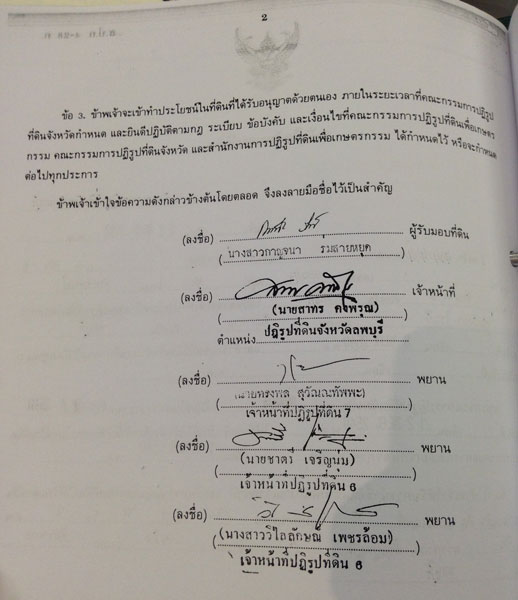 2
ข้อ 3. ข้าพเจ้าจะเข้าทำประโยชน์ในที่ดินที่ได้รับอนุญาตด้วยตนเอง ภายในระยะเวลาที่คณะกรรมการปฏิรูป
ที่ดินจังหวัดกำหนด และยินดีปฏิบัติตามกฎ ระเบียบ ข้อบังคับ และเงื่อนไขที่คณะกรรมการปฏิรูปที่ดินเพื่อเกษตร
กรรม คณะกรรมการปฏิรูปที่ดินจังหวัด และสำนักงานการปฏิรูปที่ดินเพื่อเกษตรกรรม ได้กำหนดไว้ หรือจะกำหนด
ต่อไปทุกประการ
ข้าพเจ้าเข้าใจข้อความดังกล่าวข้างต้นโดยตลอด จึงลงลายมือชื่อไว้เป็นสำคัญ
(ลงชื่อ) ผู้รับมอบที่ดิน
(นางสาวกาญจนา รมสายหยุด)
(ลงชื่อ) เจ้าหน้าที่
(นายสาทร คงพิรุณ)
ตำแหน่ง ปฏิรูปที่ดินจังหวัดลพบุรี
(ลงชื่อ) พยาน
(นายทรงพล สุวัณณทัพพะ)
เจ้าหน้าที่ปฏิรูปที่ดิน 7
(ลงชื่อ) พยาน
(นายชาตรี เจริญนุ่ม)
เจ้าหน้าที่ปฏิรูปที่ดิน 6
(ลงชื่อ) พยาน
(นางสาววิไลลักษณ์ เพชรล้อม)
เจ้าหน้าที่ปฏิรูปที่ดิน 6